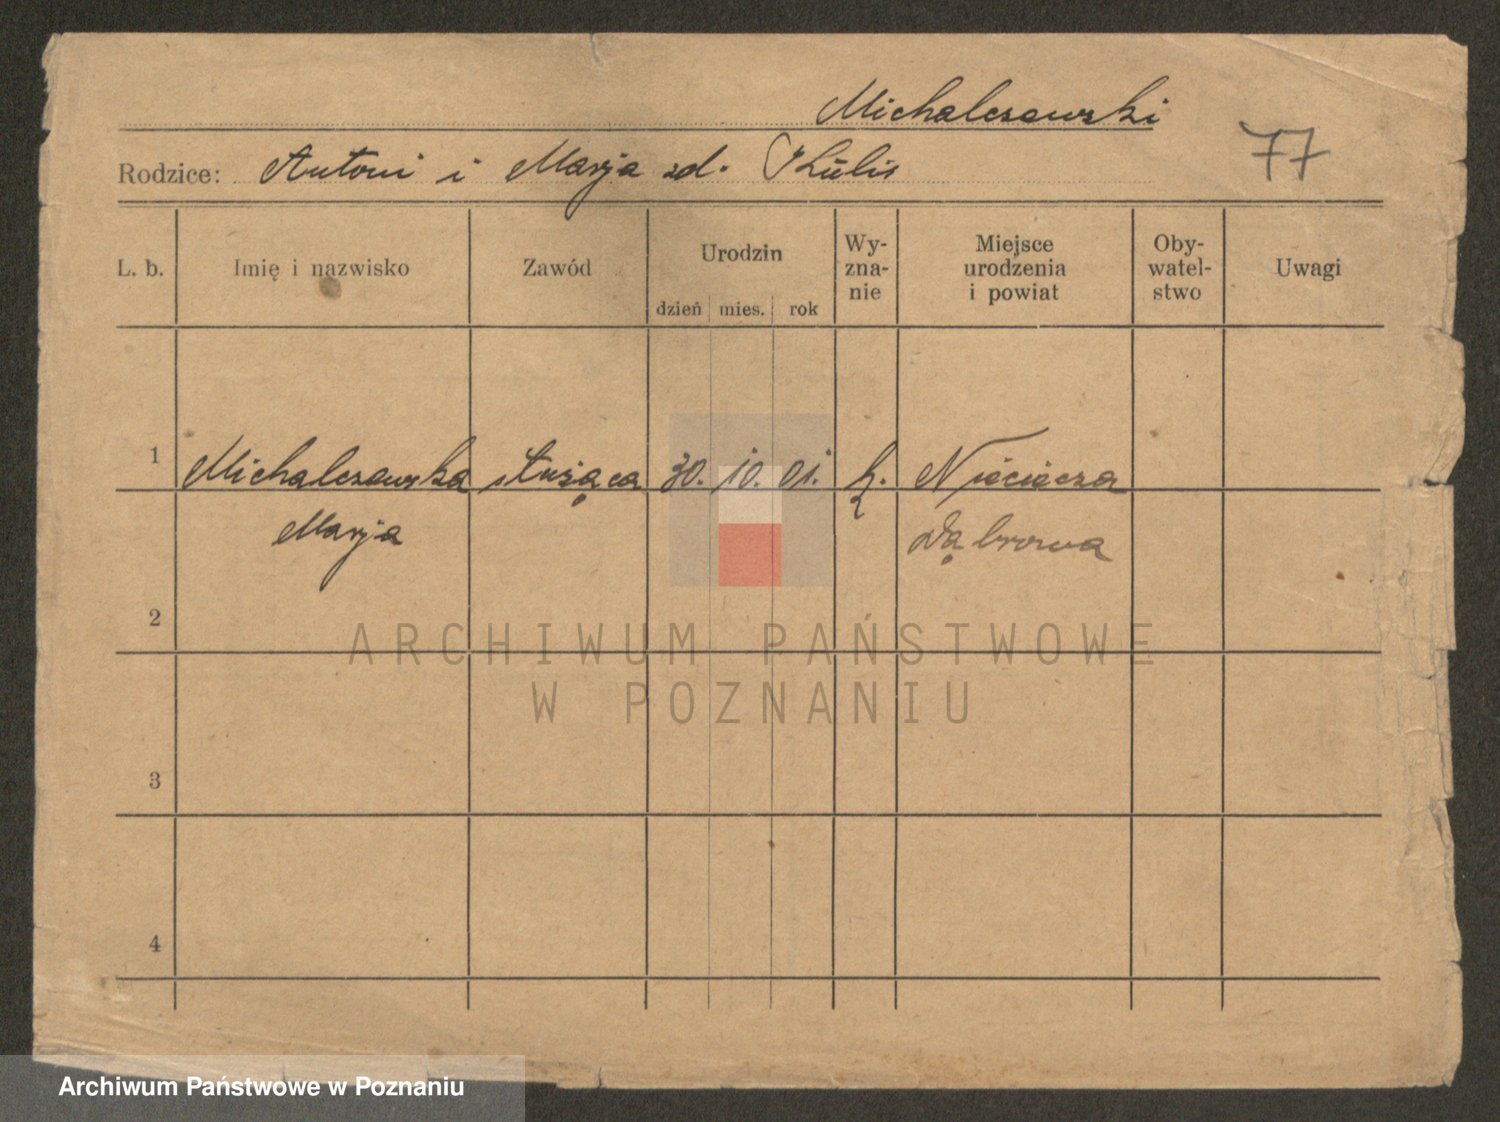 Michalczewski
77
Rodzice: Antoni i Marja zd. Kulis
L. b. Imię i nazwisko Zawód Urodzin dzień mies. rok Wy-zna-nie Miejsce urodzenia i powiat Oby-watel-stwo Uwagi
1 Michalczewska służąca 30. 10. 01. k. Nieciecza
Marja Dąbrowa
2
ARCHIWUM PAŃSTWOWE
W POZNANIU
3
4
Archiwum Państwowe w Poznaniu